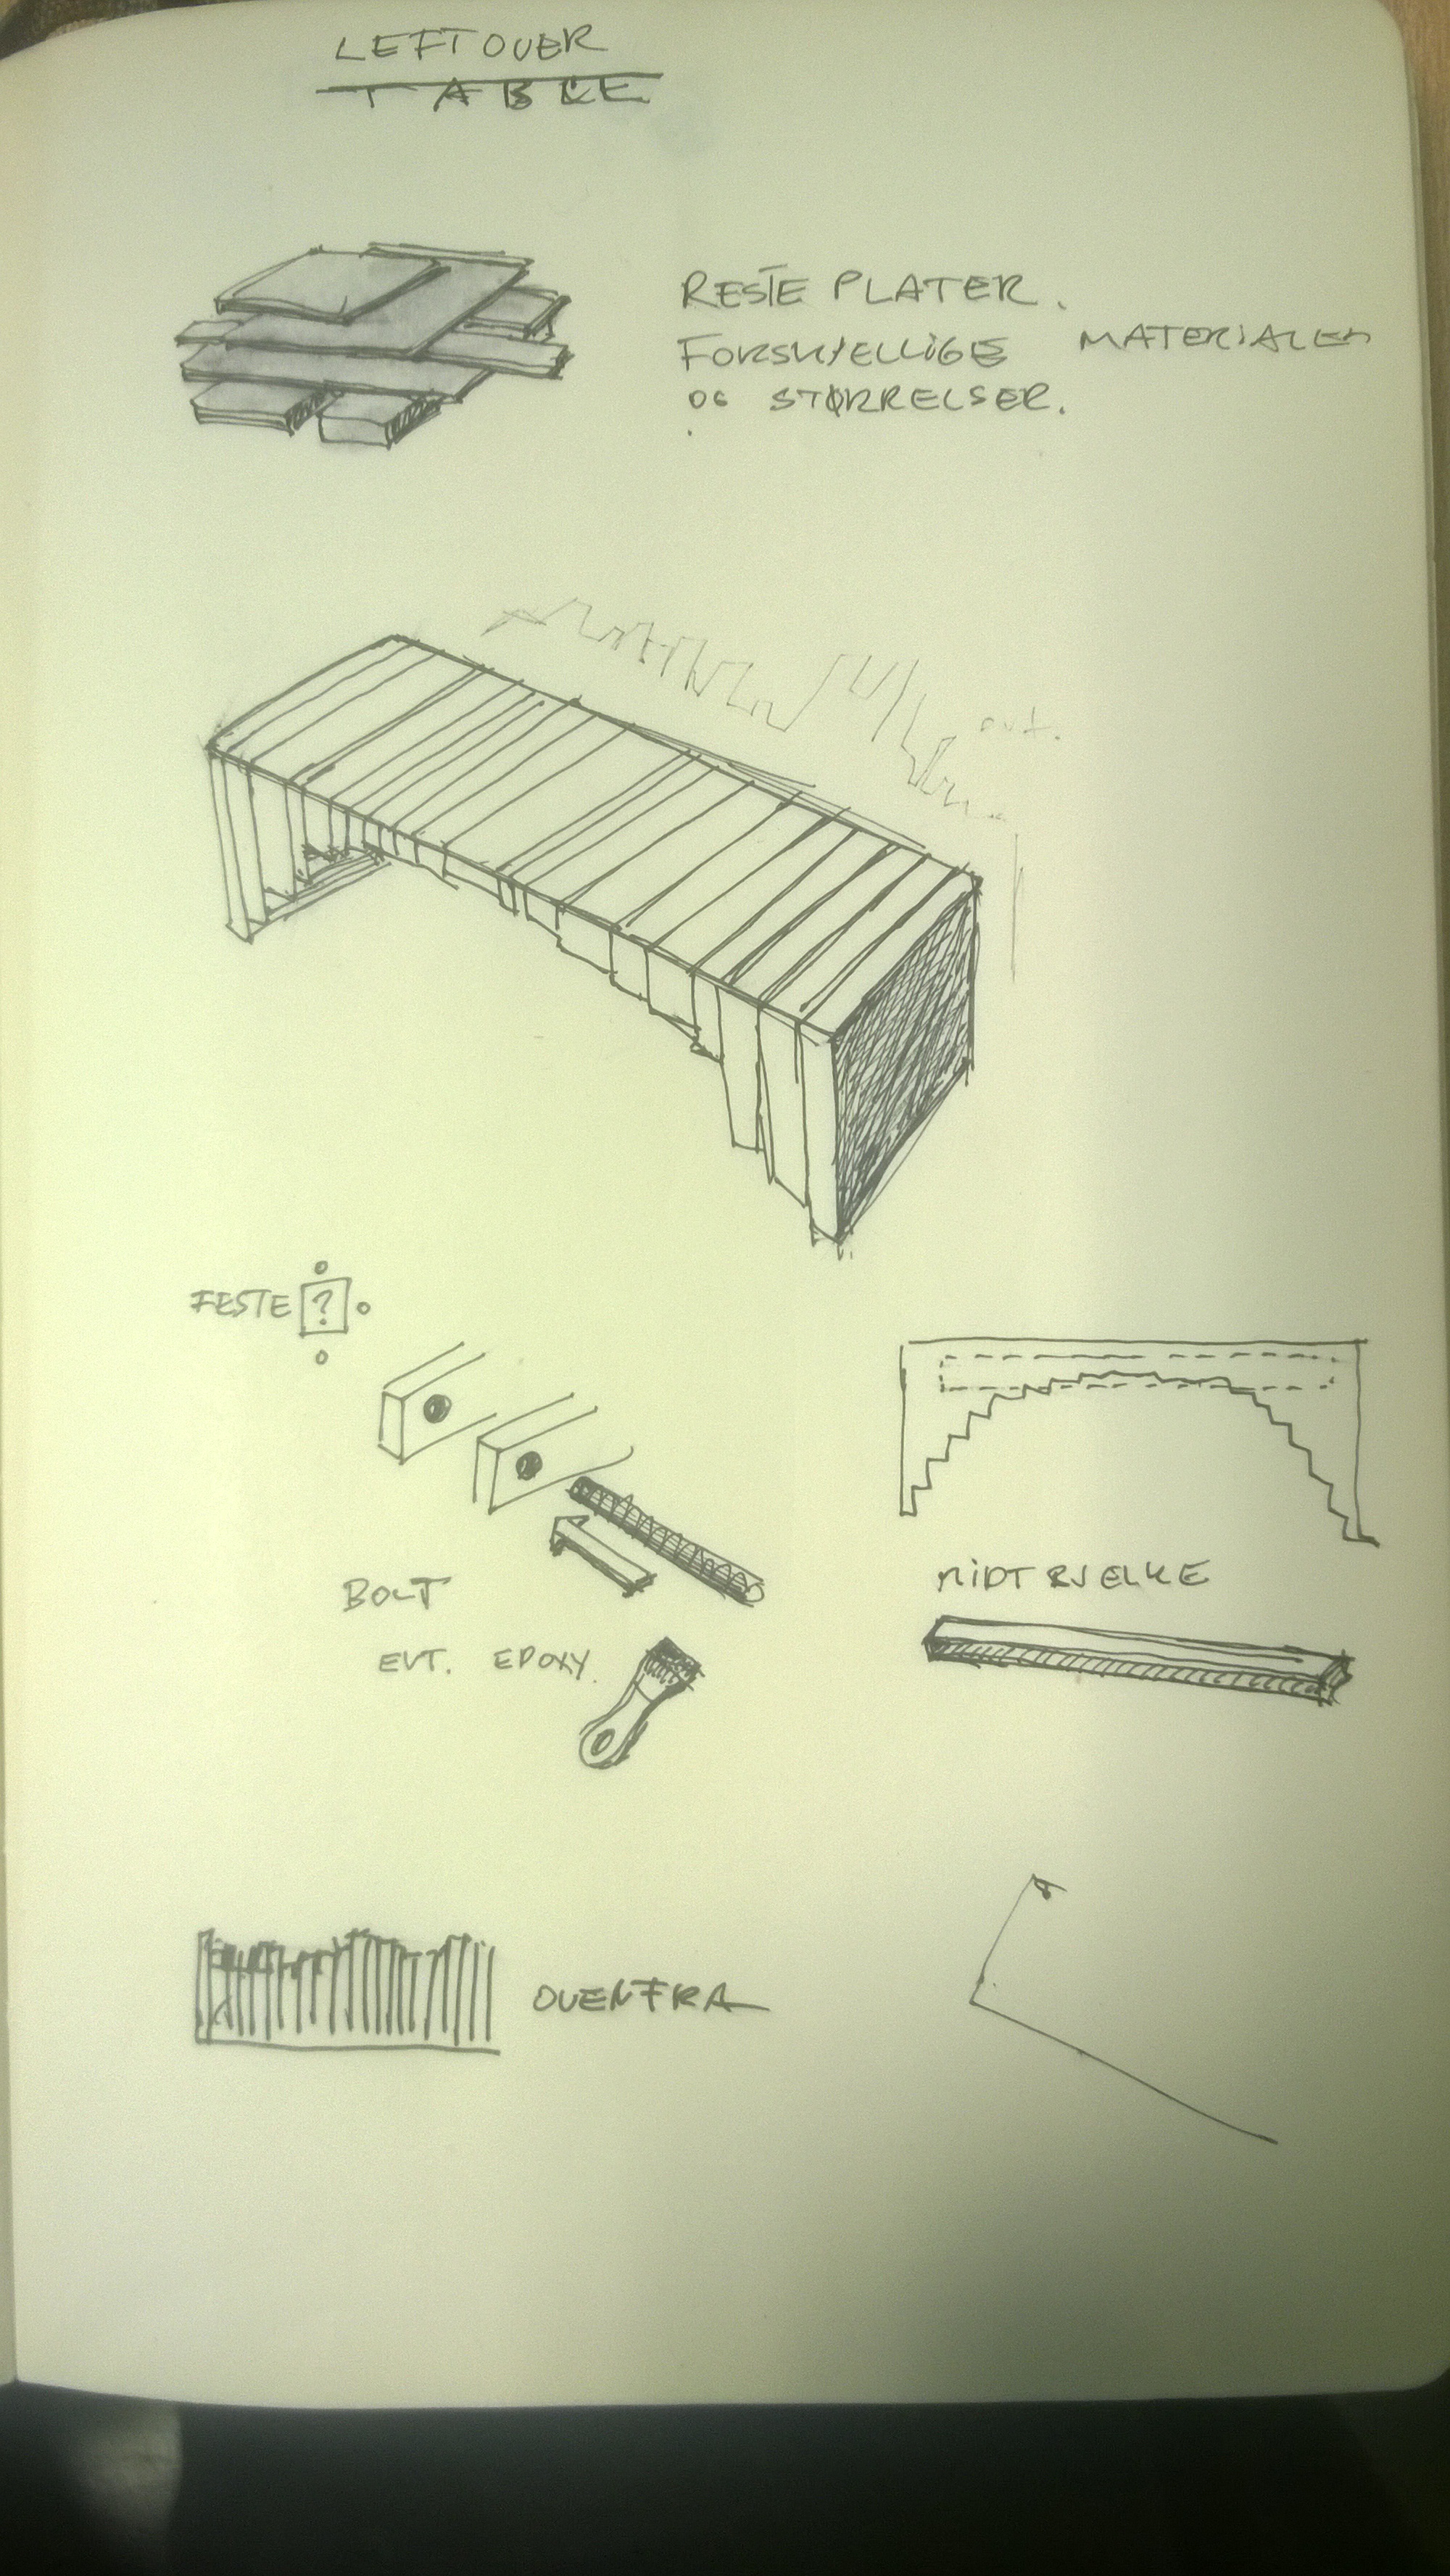 LEFTOVER
TABLE
RESTE PLATER.
FORSKJELLIGE MATERIALER
OG STØRRELSER.
evt.
FESTE ?
BOLT
EVT. EPOXY.
MIDTBJELKE
OVENFRA